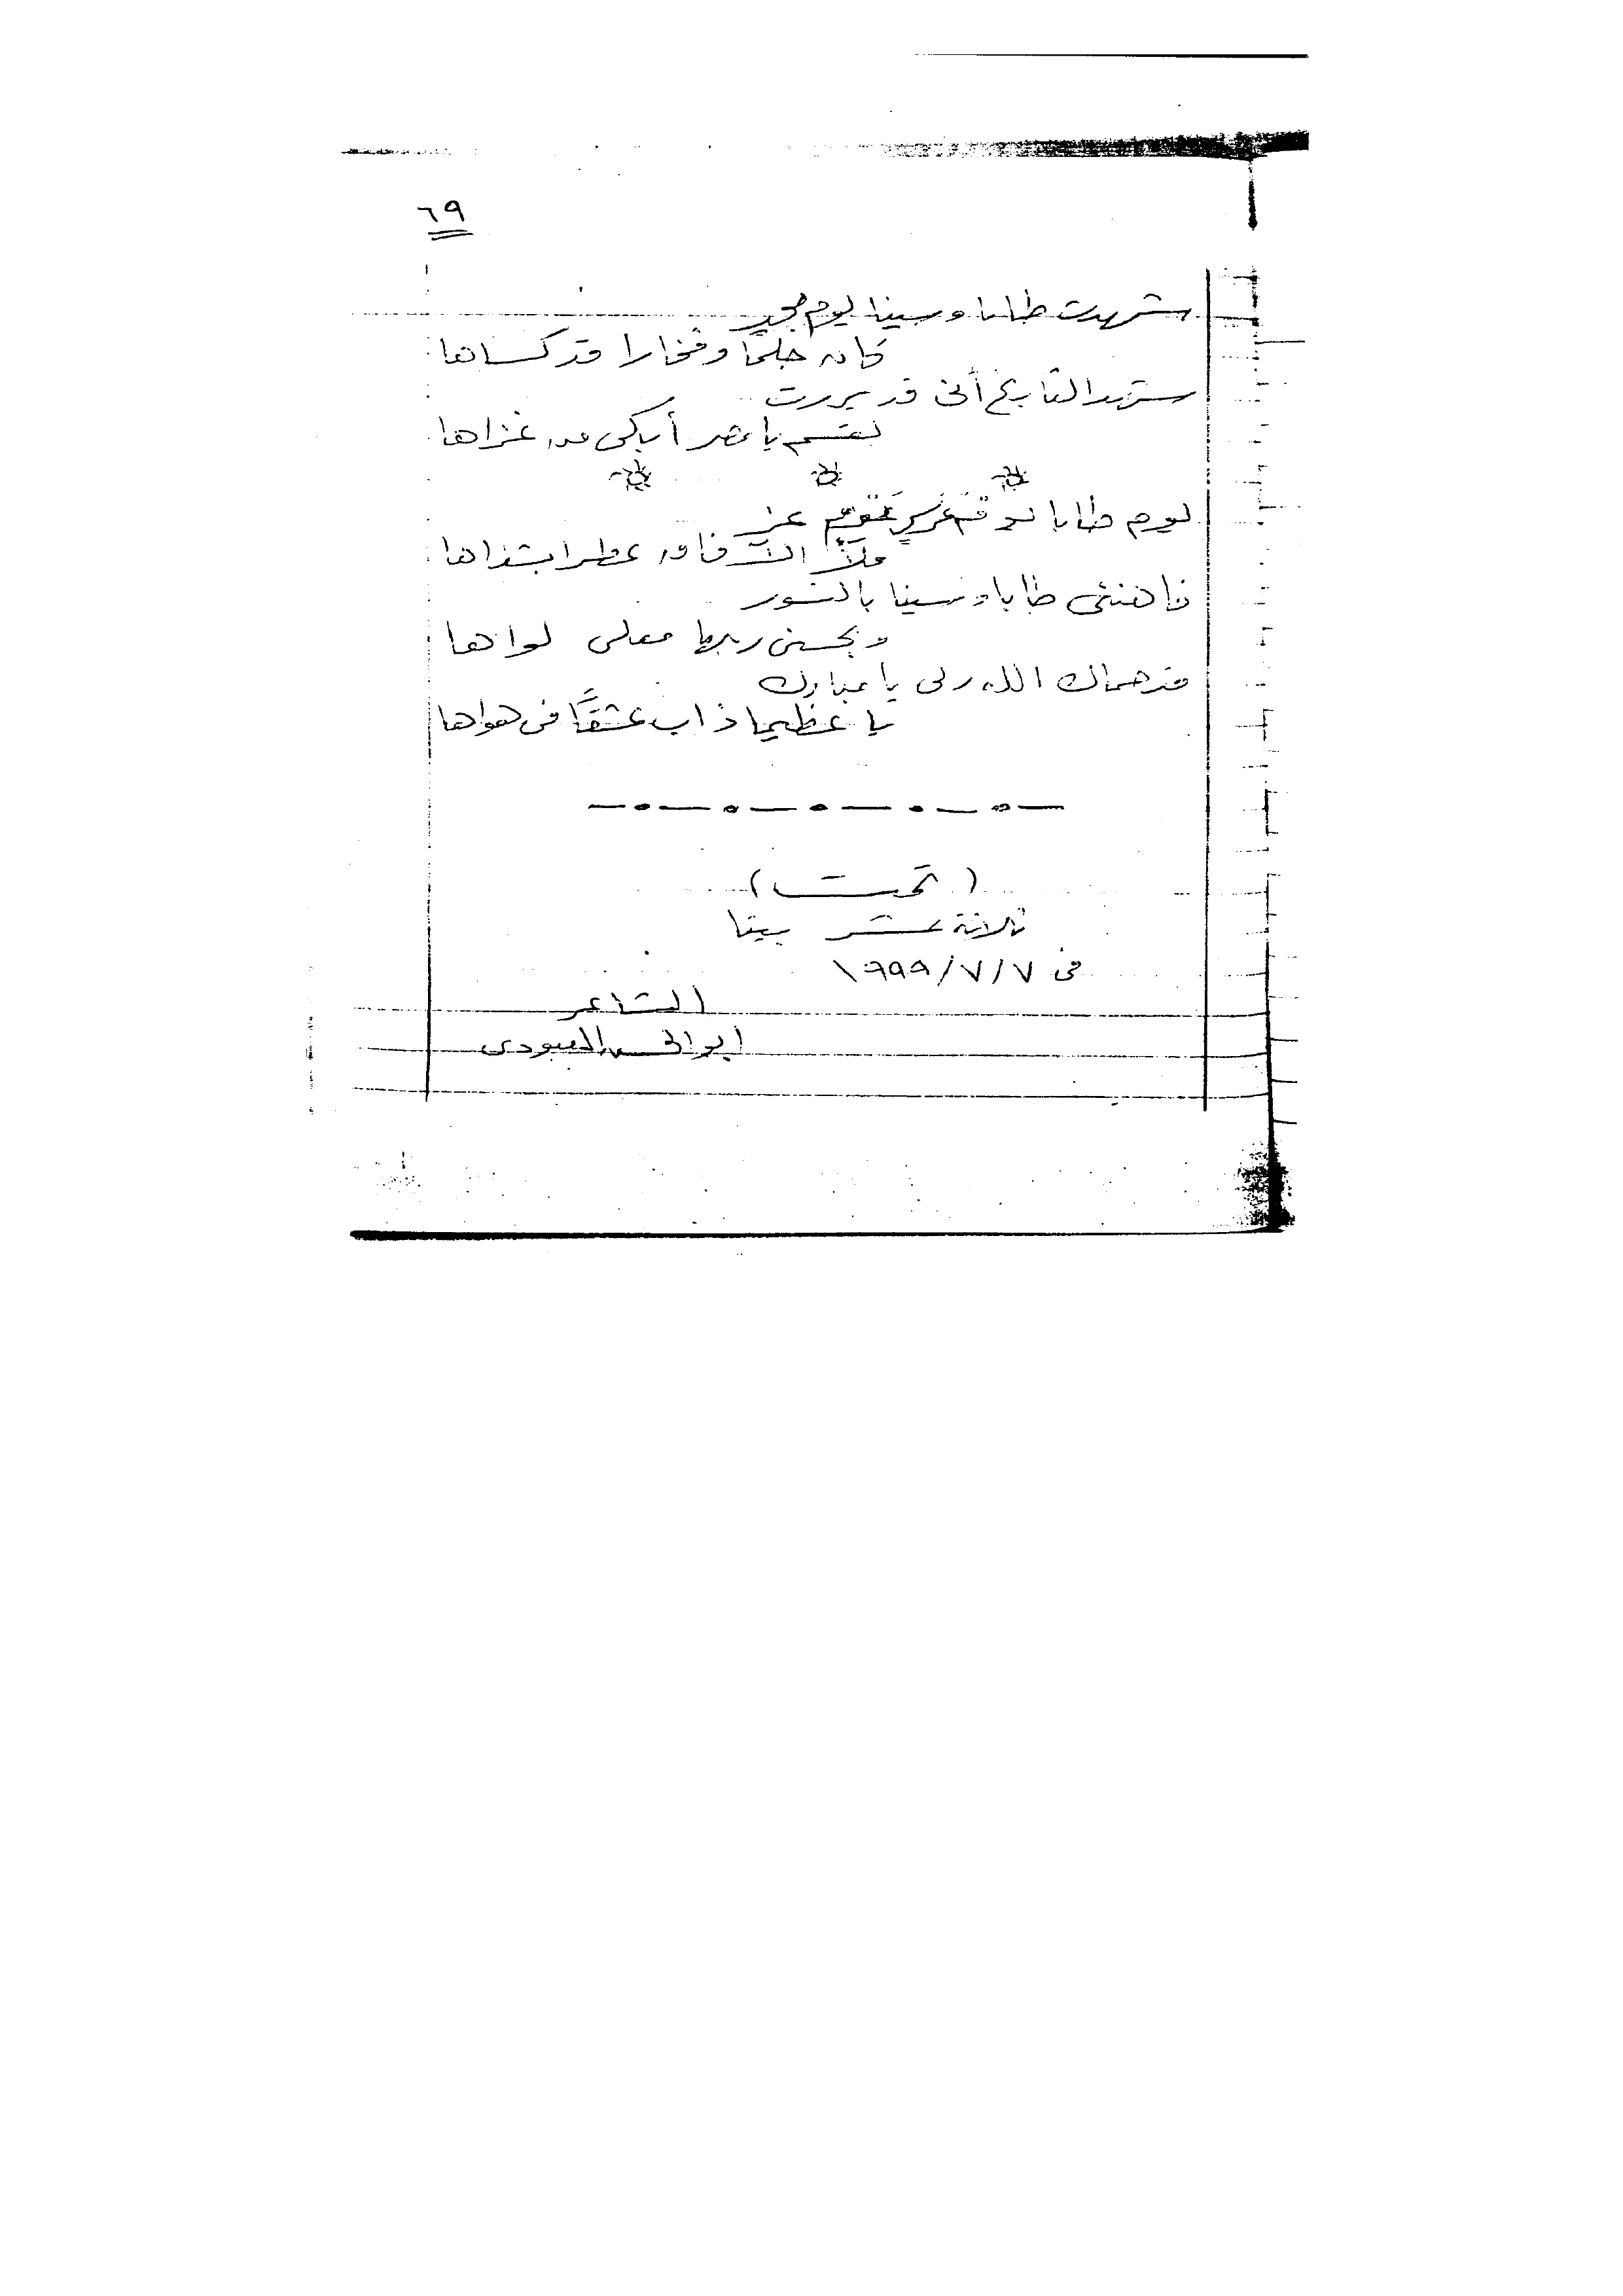 ٦٩
شهدت طابا وسينا يوم مجد
كان حلمًا وفخارا قد كساها
شهد التاريخ أنى قد بررت
بقسم يا مصر أبكى من غزاها
يوم طابا عز
ملأ الآفاق عطرا بشذاها
فاهنئى طابا وسينا بالنسور
وبحسنى ربها معلى لواها
قد حماك الله ربى يا مبارك
يا عظيما ذاب عشقًا فى هواها
(تمت)
ثلاثة عشر بيتا
فى ٧/٧/١٩٩٩
الشاعر
ابو الحسن العبودى